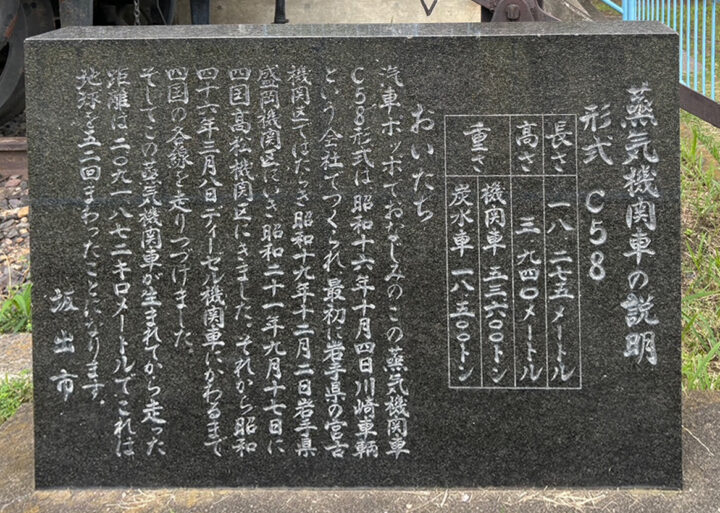 蒸気機関車の説明
形式 C58
長さ 一八.二七五メートル
高さ 三.九四〇メートル
重さ 機関車 五三.六〇〇トン
炭水車 一八.五〇〇トン
おいたち
汽車ポッポでおなじみのこの蒸気機関車
C58形式は昭和十六年十月四日川崎車輌
という会社でつくられ最初に岩手県の宮古
機関区ではたらき昭和十九年十二月二日岩手県
盛岡機関区にいき昭和二十一年九月十七日に
四国高松機関区にきました。それから昭和
四十六年三月八日ディーゼル機関車にかわるまで
四国の各線を走りつづけました。
そしてこの蒸気機関車が生まれてから走った
距離は二〇九一八七二キロメートルでこれは
地球を五二回まわったことになります。
坂出市